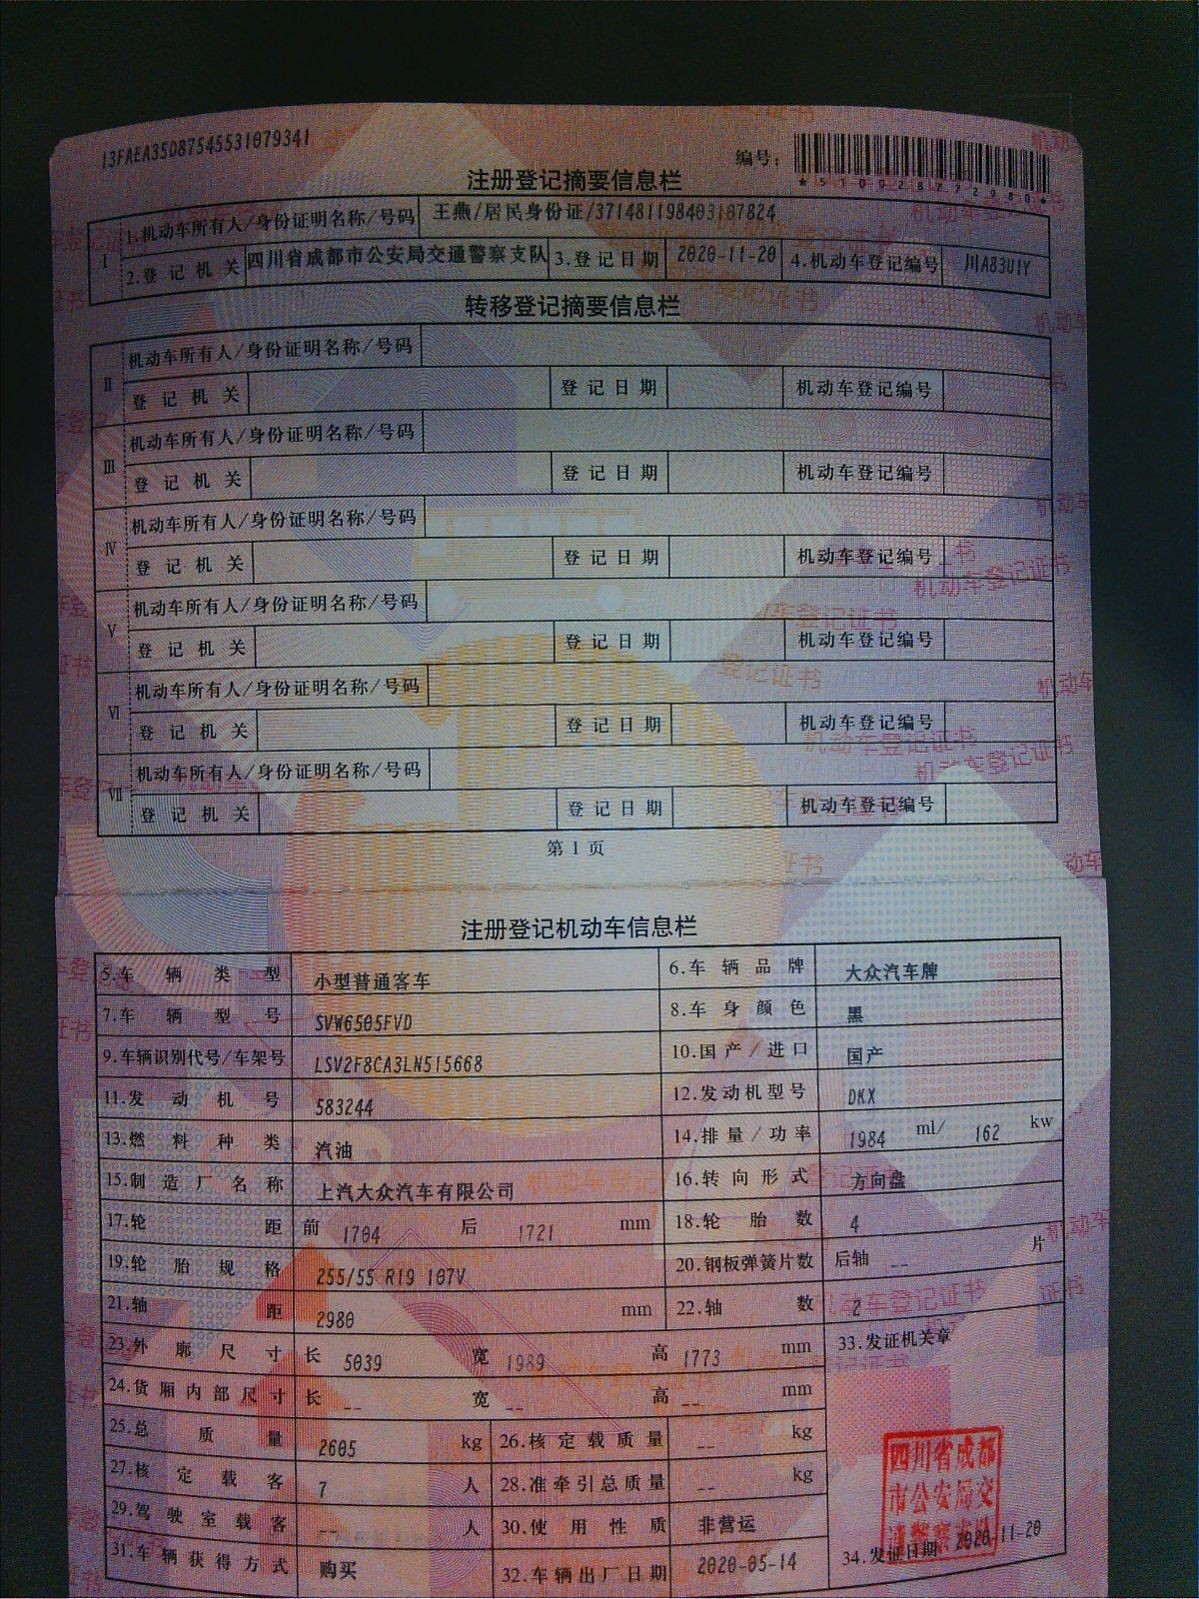 13FAEA35087545531079341
编号：
*510028772980*
注册登记摘要信息栏
I 1.机动车所有人/身份证明名称/号码 王燕/居民身份证/371481198403107824
2.登记机关 四川省成都市公安局交通警察支队 3.登记日期 2020-11-20 4.机动车登记编号 川A83U1Y
转移登记摘要信息栏
II 机动车所有人/身份证明名称/号码
登记机关 登记日期 机动车登记编号
III 机动车所有人/身份证明名称/号码
登记机关 登记日期 机动车登记编号
IV 机动车所有人/身份证明名称/号码
登记机关 登记日期 机动车登记编号
V 机动车所有人/身份证明名称/号码
登记机关 登记日期 机动车登记编号
VI 机动车所有人/身份证明名称/号码
登记机关 登记日期 机动车登记编号
VII 机动车所有人/身份证明名称/号码
登记机关 登记日期 机动车登记编号
第 1 页
注册登记机动车信息栏
5.车辆类型 小型普通客车 6.车辆品牌 大众汽车牌
7.车辆型号 SVW6505FVD 8.车身颜色 黑
9.车辆识别代号/车架号 LSV2F8CA3LN515668 10.国产/进口 国产
11.发动机号 583244 12.发动机型号 DKX
13.燃料种类 汽油 14.排量/功率 1984 ml/ 162 kw
15.制造厂名称 上汽大众汽车有限公司 16.转向形式 方向盘
17.轮距 前 1704 后 1721 mm 18.轮胎数 4
19.轮胎规格 255/55 R19 107V 20.钢板弹簧片数 后轴 -- 片
21.轴距 2980 mm 22.轴数 2
23.外廓尺寸 长 5039 宽 1989 高 1773 mm 33.发证机关章
24.货厢内部尺寸 长 -- 宽 -- 高 -- mm
25.总质量 2605 kg 26.核定载质量 -- kg
27.核定载客 7 人 28.准牵引总质量 -- kg
29.驾驶室载客 -- 人 30.使用性质 非营运
31.车辆获得方式 购买 32.车辆出厂日期 2020-05-14 34.发证日期 2020-11-20
四川省成都
市公安局交
通警察支队